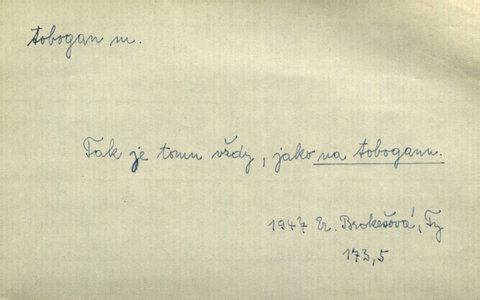 tobogan m.
Tak je tomu vždy, jako na toboganu.
1947 Er. Brokešová, Ty
173,5